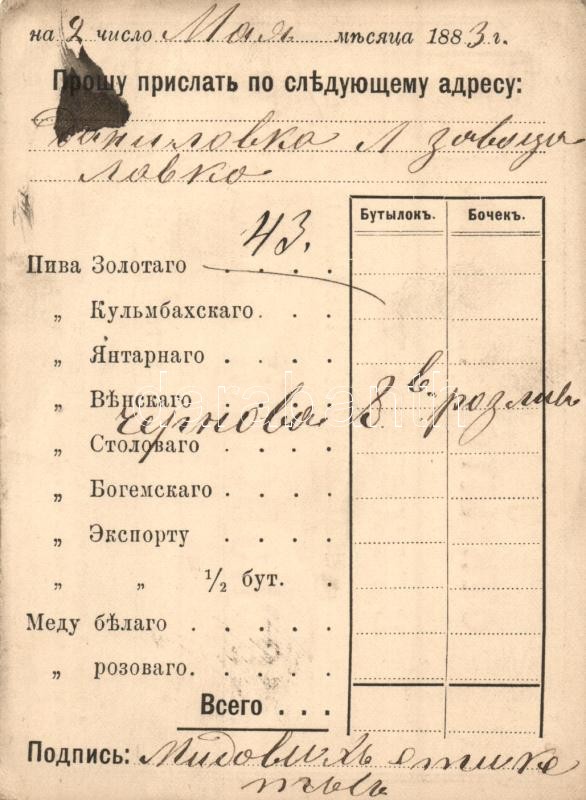 на 2 число Мая мѣсяца 1883 г.
Прошу прислать по слѣдующему адресу:
Даниловка
ловко
Бутылокъ. Бочекъ.
43.
Пива Золотаго . . . .
„ Кульмбахскаго . . .
„ Янтарнаго . . . .
„ Вѣнскаго . . . .
чернова 8 в. розлив
„ Столоваго . . . .
„ Богемскаго . . . .
„ Экспорту . . . .
„ „ 1/2 бут. .
Меду бѣлаго . . . . .
„ розоваго . . . . .
Всего . . .
Подпись: